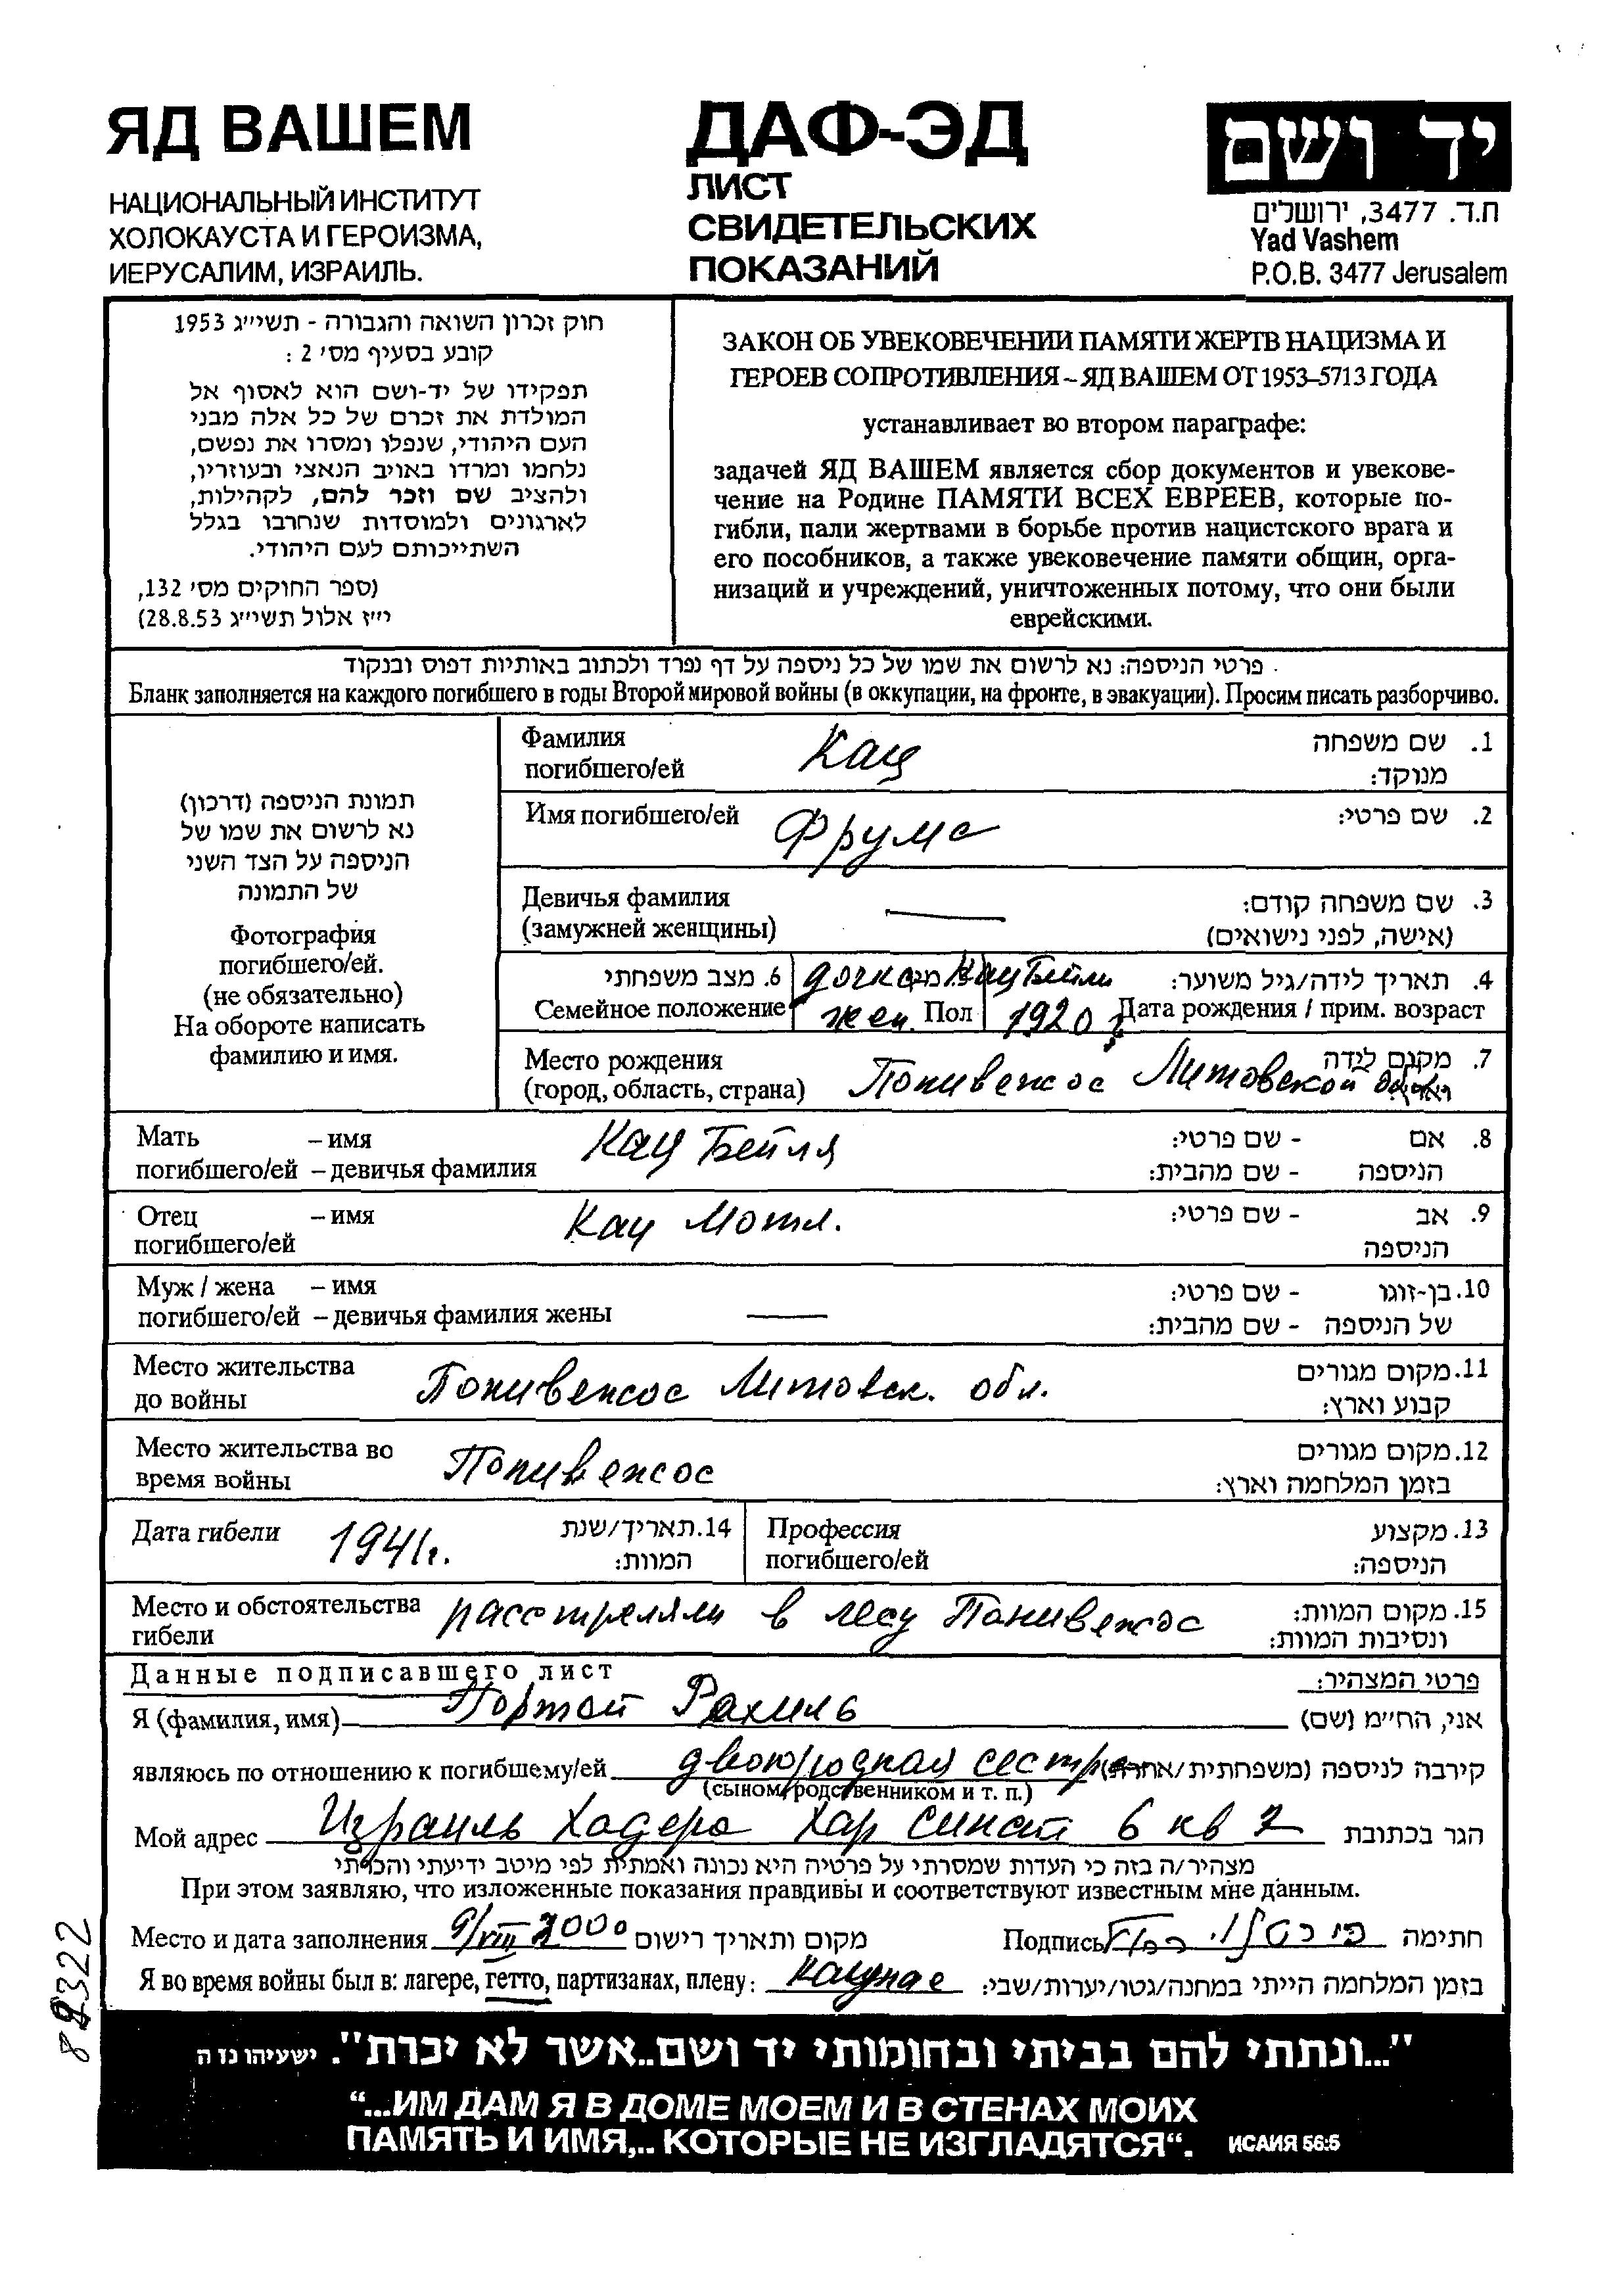 ЯД ВАШЕМ
НАЦИОНАЛЬНЫЙ ИНСТИТУТ
ХОЛОКАУСТА И ГЕРОИЗМА,
ИЕРУСАЛИМ, ИЗРАИЛЬ.
ДАФ-ЭД
ЛИСТ
СВИДЕТЕЛЬСКИХ
ПОКАЗАНИЙ
יד ושם
ת.ד. 3477, ירושלים
Yad Vashem
P.O.B. 3477 Jerusalem
חוק זכרון השואה והגבורה - תשי״ג 1953
קובע בסעיף מס׳ 2 :
תפקידו של יד-ושם הוא לאסוף אל
המולדת את זכרם של כל אלה מבני
העם היהודי, שנפלו ומסרו את נפשם,
נלחמו ומרדו באויב הנאצי ובעוזריו,
ולהציב שם וזכר להם, לקהילות,
לארגונים ולמוסדות שנחרבו בגלל
השתייכותם לעם היהודי.
(ספר החוקים מס׳ 132,
י״ז אלול תשי״ג 28.8.53)
ЗАКОН ОБ УВЕКОВЕЧЕНИИ ПАМЯТИ ЖЕРТВ НАЦИЗМА И
ГЕРОЕВ СОПРОТИВЛЕНИЯ – ЯД ВАШЕМ ОТ 1953–5713 ГОДА
устанавливает во втором параграфе:
задачей ЯД ВАШЕМ является сбор документов и увекове-
чение на Родине ПАМЯТИ ВСЕХ ЕВРЕЕВ, которые по-
гибли, пали жертвами в борьбе против нацистского врага и
его пособников, а также увековечение памяти общин, орга-
низаций и учреждений, уничтоженных потому, что они были
еврейскими.
פרטי הניספה: נא לרשום את שמו של כל ניספה על דף נפרד ולכתוב באותיות דפוס ובנקוד
Бланк заполняется на каждого погибшего в годы Второй мировой войны (в оккупации, на фронте, в эвакуации). Просим писать разборчиво.
תמונת הניספה (דרכון)
נא לרשום את שמו של
הניספה על הצד השני
של התמונה
Фотография
погибшего/ей.
(не обязательно)
На обороте написать
фамилию и имя.
Фамилия Кац 1. שם משפחה
погибшего/ей מנוקד:
Имя погибшего/ей Фрума 2. שם פרטי:
Девичья фамилия — 3. שם משפחה קודם:
(замужней женщины) (אישה, לפני נישואים)
6. מצב משפחתי дочка Кац Бейли 4. תאריך לידה/גיל משוער:
Семейное положение жен. Пол 1920 г. Дата рождения / прим. возраст
Место рождения 7. מקום לידה
(город, область, страна) Понивежсос Литовской обл. וארץ:
Мать – имя Кац Бейля 8. אם - שם פרטי:
погибшего/ей – девичья фамилия הניספה - שם מהבית:
Отец – имя Кац Мотл. 9. אב - שם פרטי:
погибшего/ей הניספה
Муж / жена – имя 10. בן-זוגו - שם פרטי:
погибшего/ей – девичья фамилия жены — של הניספה - שם מהבית:
Место жительства 11. מקום מגורים
до войны Понивежсос Литовск. обл. קבוע וארץ:
Место жительства во 12. מקום מגורים
время войны Понивежсос בזמן המלחמה וארץ:
Дата гибели 1941г. 14. תאריך/שנת המוות:
Профессия 13. מקצוע
погибшего/ей הניספה:
Место и обстоятельства расстреляли в лесу Панивежсос 15. מקום המוות:
гибели ונסיבות המוות:
Данные подписавшего лист פרטי המצהיר:
Я (фамилия, имя) Портой Рахиль אני, הח״מ (שם)
являюсь по отношению к погибшему/ей двоюродная сестра קירבה לניספה (משפחתית/אחרת)
(сыном, родственником и т. п.)
Мой адрес Израиль Хадера Хар Синай 6 кв 7 הגר בכתובת
מצהיר/ה בזה כי העדות שמסרתי על פרטיה היא נכונה ואמתית לפי מיטב ידיעתי והכרתי
При этом заявляю, что изложенные показания правдивы и соответствуют известным мне данным.
Место и дата заполнения 9/VIII 2000 מקום ותאריך רישום Подпись חתימה
Я во время войны был в: лагере, гетто, партизанах, плену: Каунасе בזמן המלחמה הייתי במחנה/גטו/יערות/שבי:
"...ונתתי להם בביתי ובחומותי יד ושם..אשר לא יכרת". ישעיהו נו ה
“...ИМ ДАМ Я В ДОМЕ МОЕМ И В СТЕНАХ МОИХ
ПАМЯТЬ И ИМЯ,.. КОТОРЫЕ НЕ ИЗГЛАДЯТСЯ“. ИСАИЯ 56:5